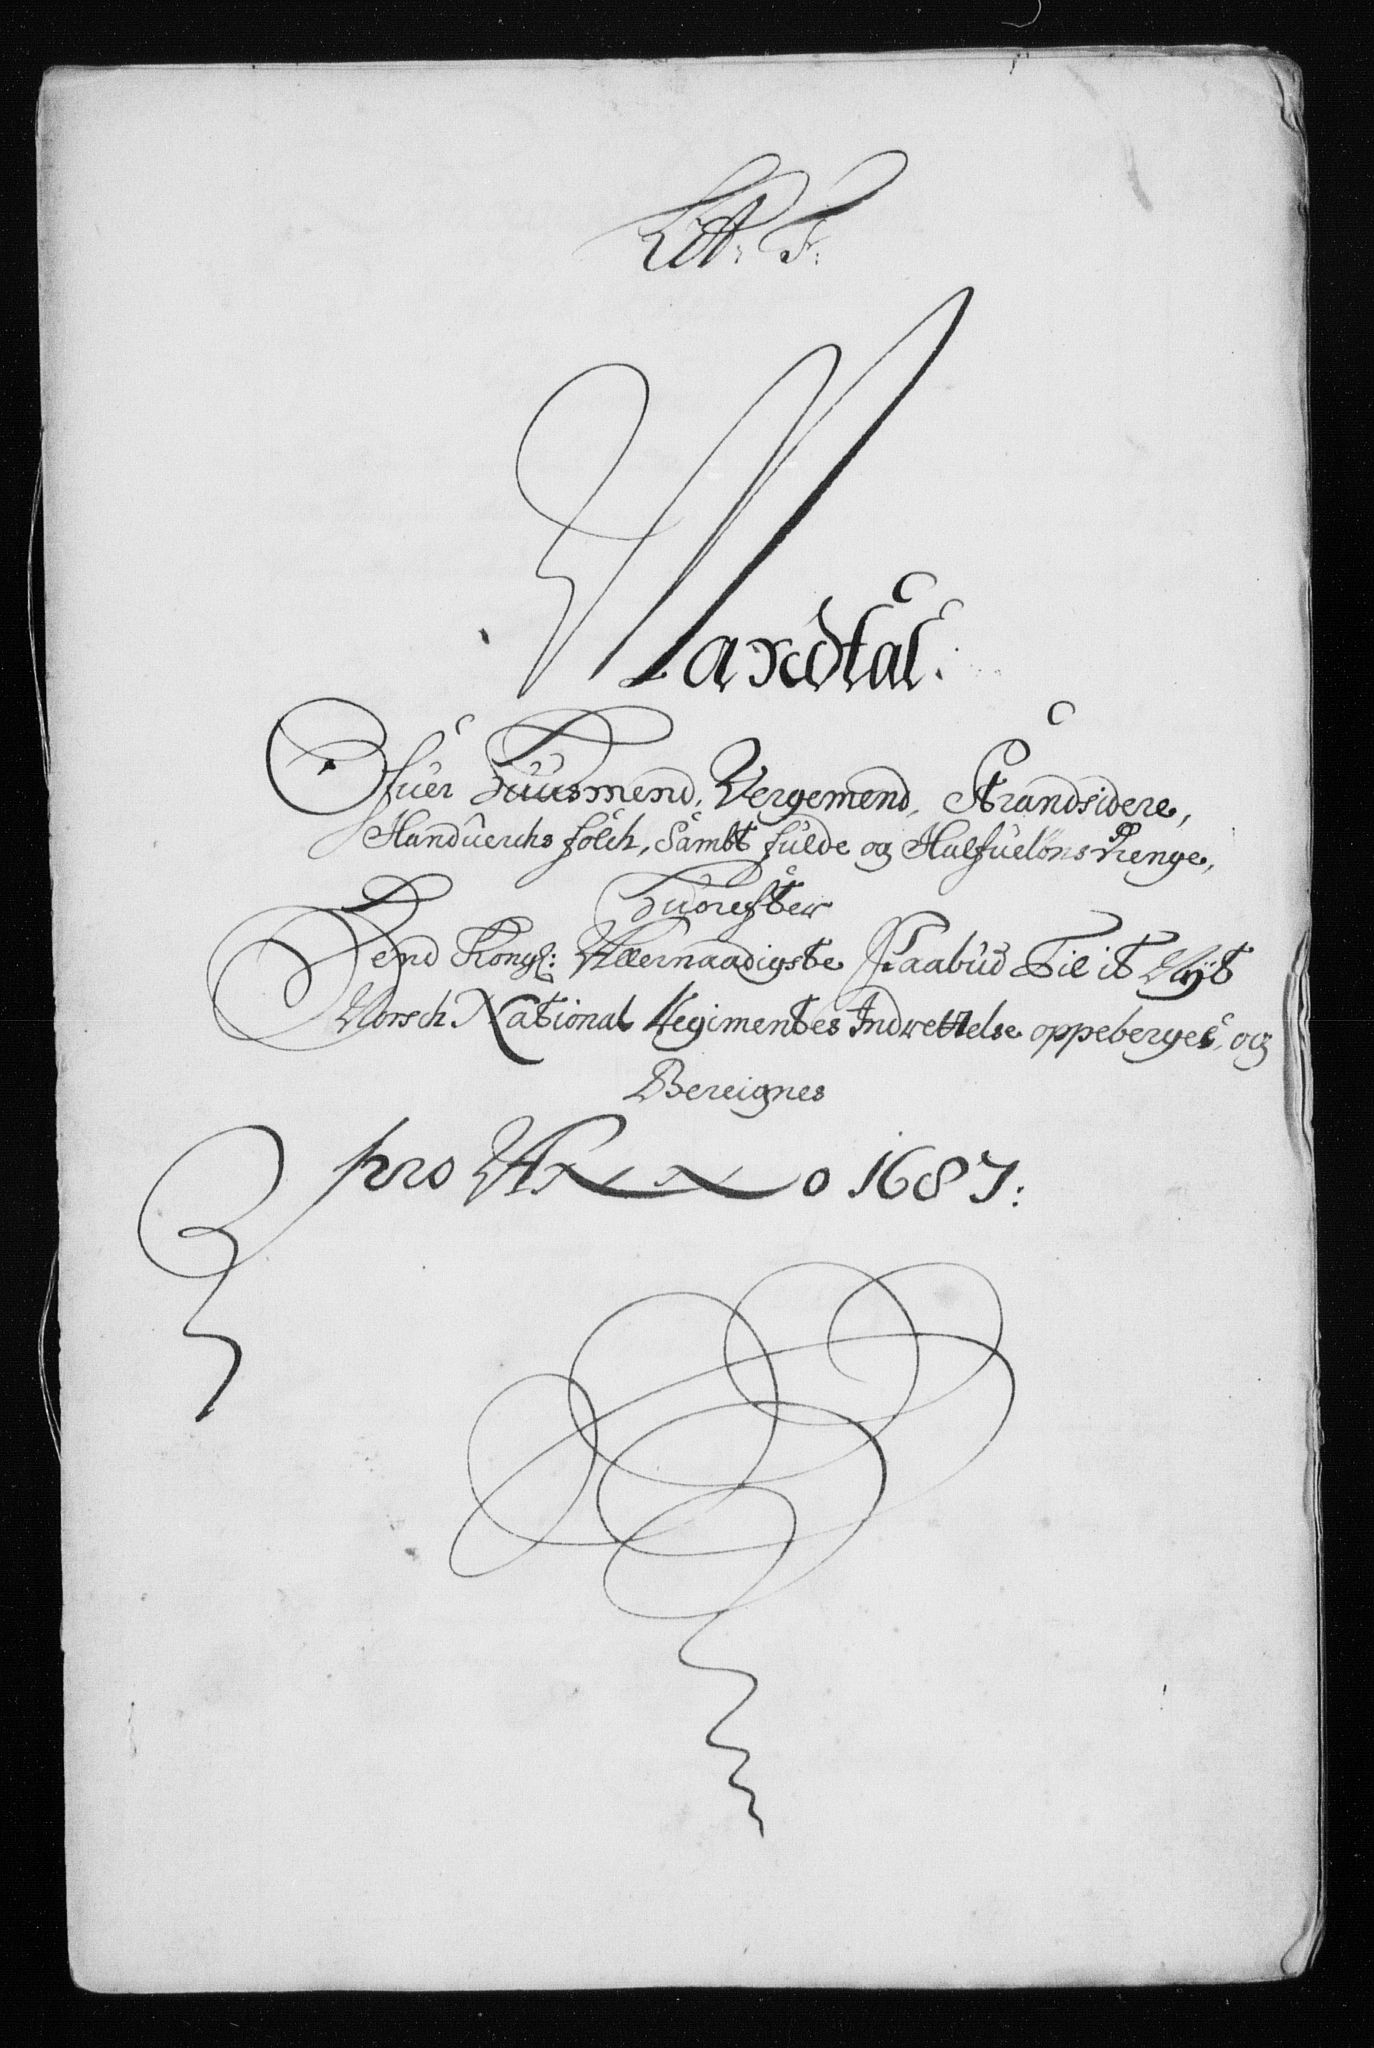 Litt: F:
Mandtal.
Ofuer Huusmend, Vergemend, Strandsidere,
Handuerchs folch, Sambt fulde og Halfuelöns Drenge,
Huorefter
Dend Kongl: Allernaadigste Paabud Til it Nyt
Norsch National Regimentes Indrettelse oppeberges, og
Bereignes
pro Anno 1687: